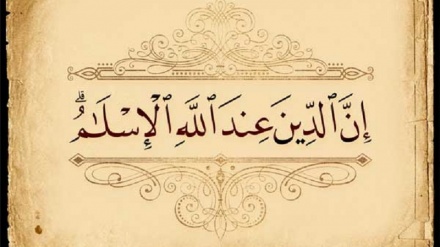 إِنَّ ٱلدِّينَ عِندَ ٱللَّهِ ٱلْإِسْلَـٰمُ ۗ